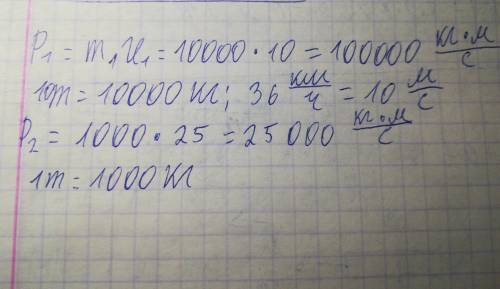 P₁ = m₁ U₁ = 10000 · 10 = 100000 кг·м/с
10т = 10000 кг; 36 км/ч = 10 м/с
P₂ = 1000 · 25 = 25 000 кг·м/с
1т = 1000 кг